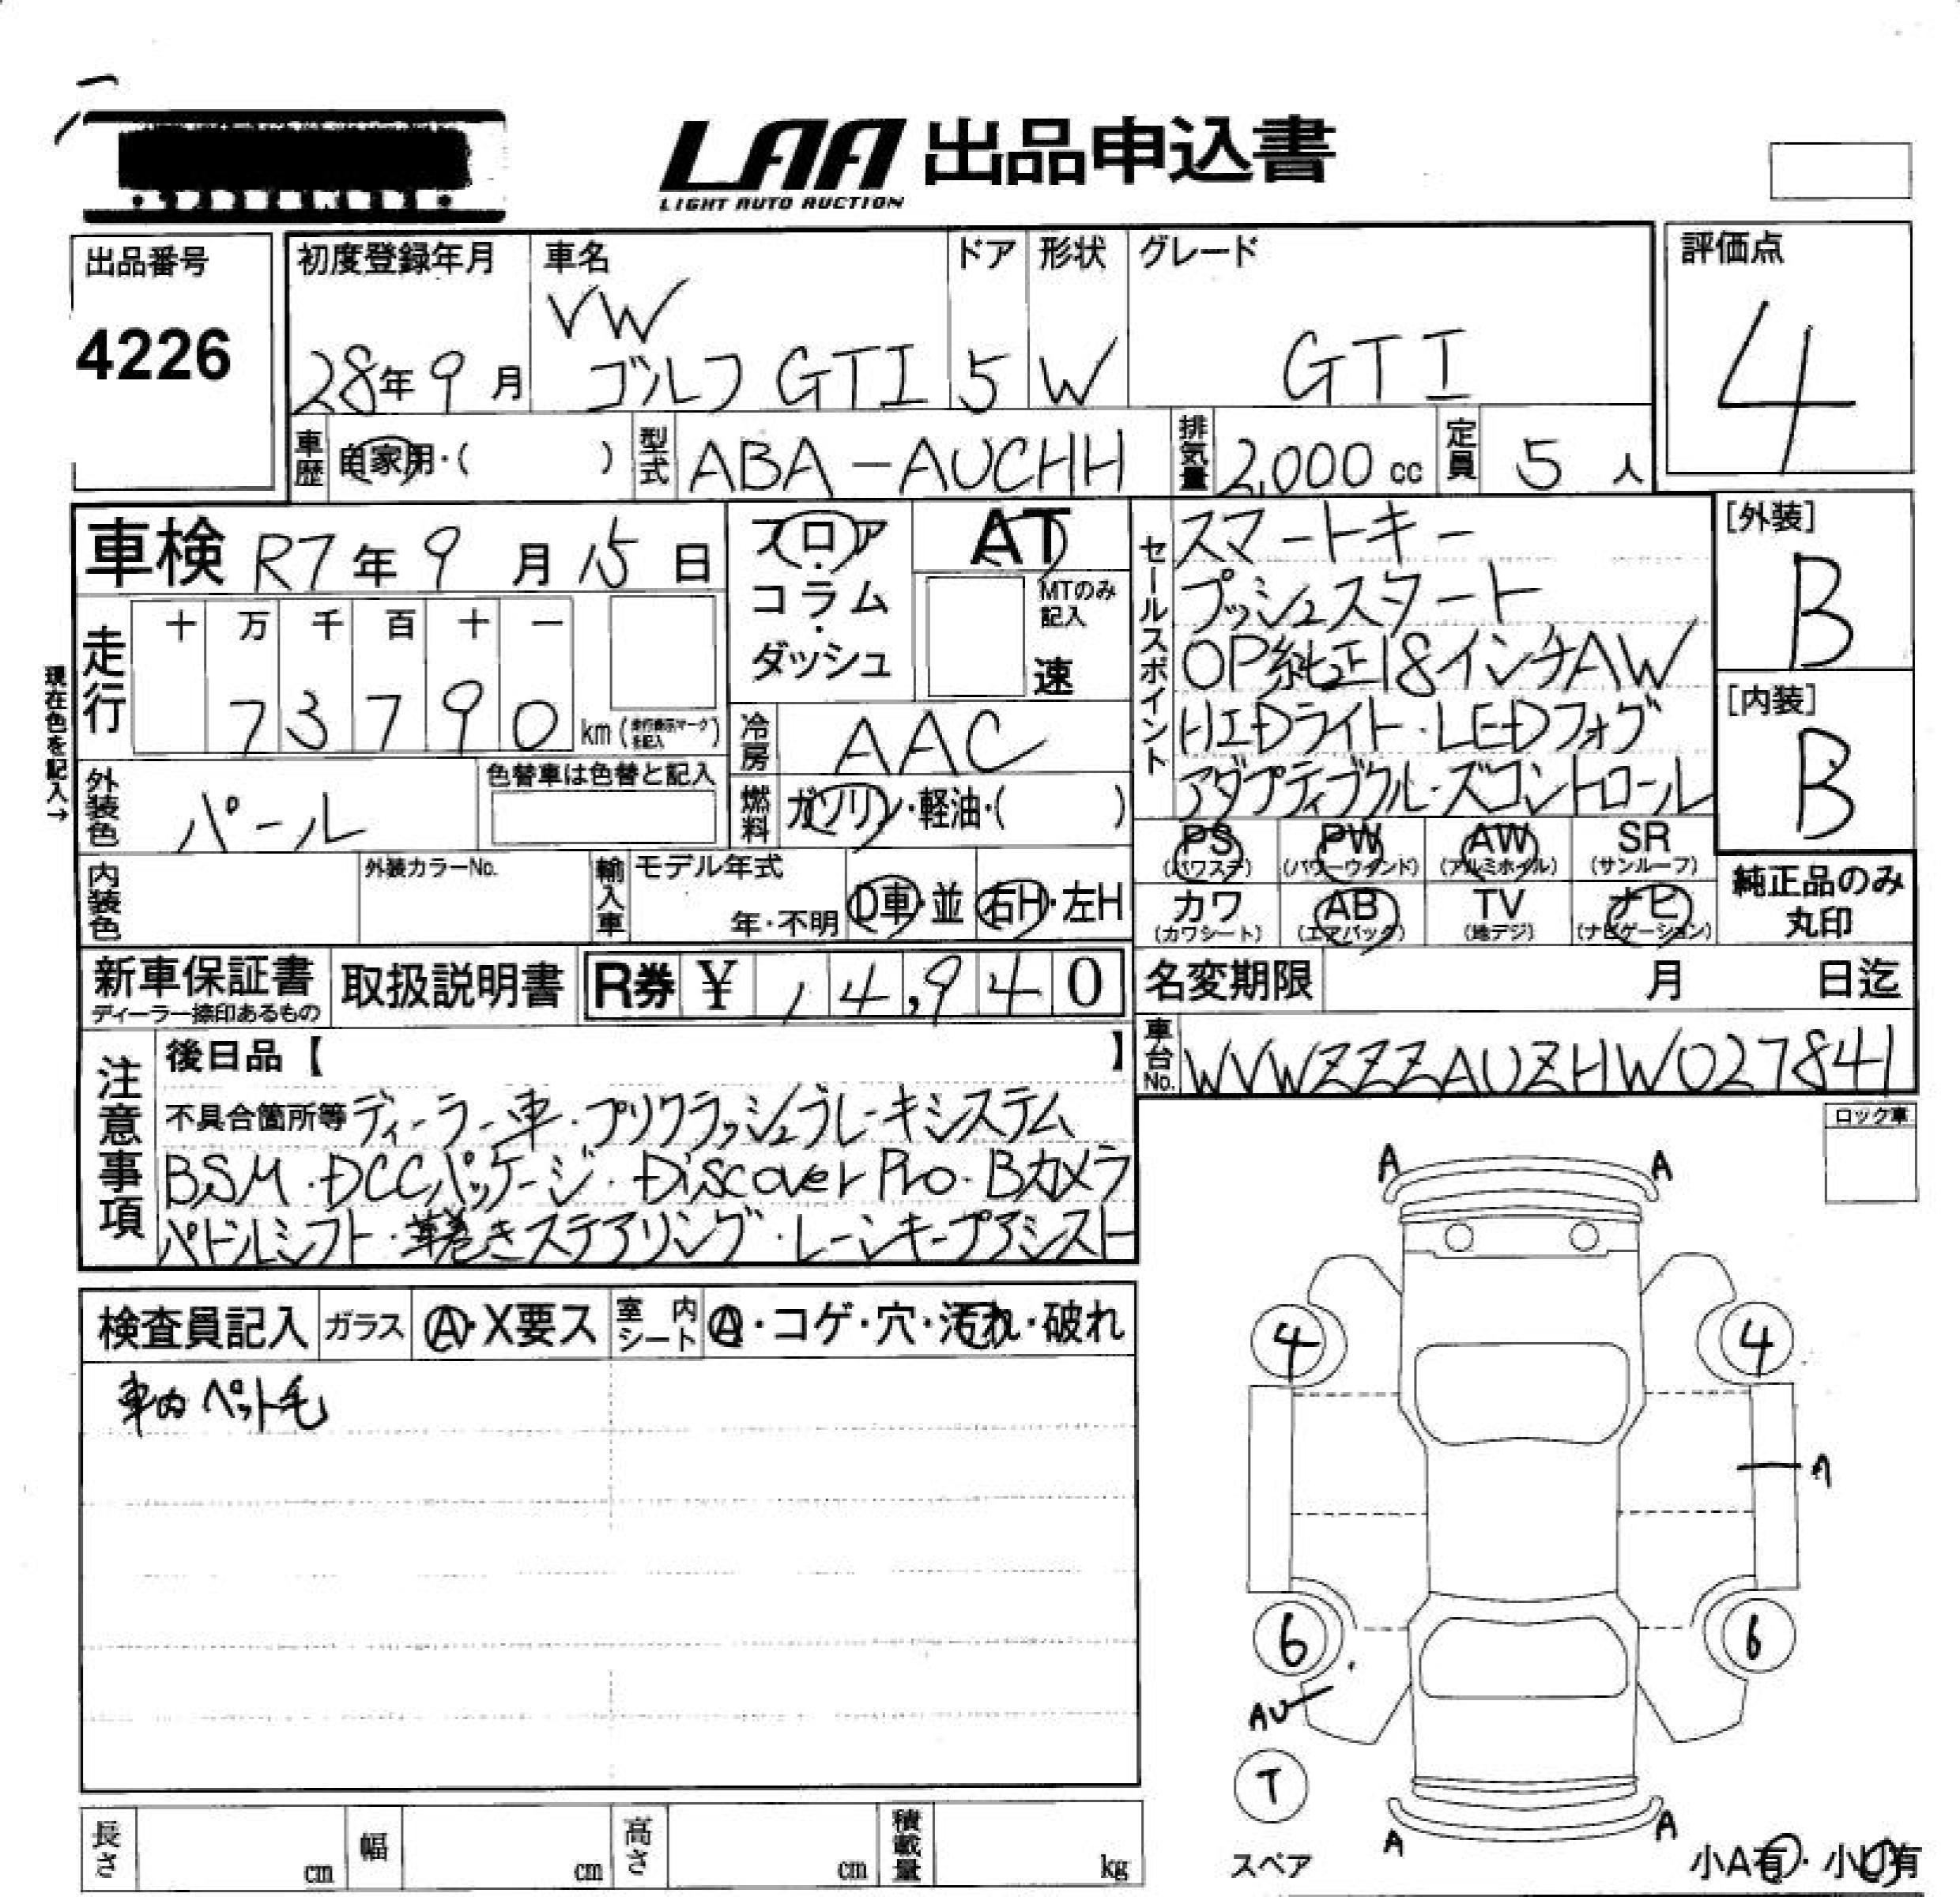 LAA 出品申込書
LIGHT AUTO AUCTION
出品番号
4226
初度登録年月
28年9月
車名
VW
ゴルフ GTI
ドア
5
形状
W
グレード
GTI
評価点
4
車歴 自家用・( )
型式 ABA-AUCHH
排気量 2,000 cc
定員 5 人
車検 R7年9月15日
フロア・コラム・ダッシュ
AT
MTのみ記入
速
走行
十 万 千 百 十 一
7 3 7 9 0 km (走行表示マークを記入)
現在色を記入→
外装色 パール
色替車は色替と記入
冷房 AAC
燃料 ガソリン・軽油・( )
内装色
外装カラーNo.
輸入車
モデル年式
年・不明
D車・並
右H・左H
セールスポイント
スマートキー
プッシュスタート
OP純正18インチAW
HIDライト・LEDフォグ
アダプティブクルーズコントロール
[外装]
B
[内装]
B
PS (パワステ)
PW (パワーウインド)
AW (アルミホイル)
SR (サンルーフ)
カワ (カワシート)
AB (エアバック)
TV (地デジ)
ナビ (ナビゲーション)
純正品のみ丸印
新車保証書
ディーラー捺印あるもの
取扱説明書
R券 ¥ 14,940
名変期限 月 日迄
車台No. WVWZZZAUZHW027841
注意事項
後日品【 】
不具合箇所等 ディーラー車・プリクラッシュブレーキシステム
BSM・DCCパッケージ・Discover Pro・Bカメラ
パドルシフト・革巻きステアリング・レーンキープアシスト
ロック車
検査員記入
ガラス
A・X要ス
室内シート
A・コゲ・穴・汚れ・破れ
車内ペット毛
A A
4 4
A
6 6
AU
T
スペア
A A
小A有・小U有
長さ cm
幅 cm
高さ cm
積載量 kg